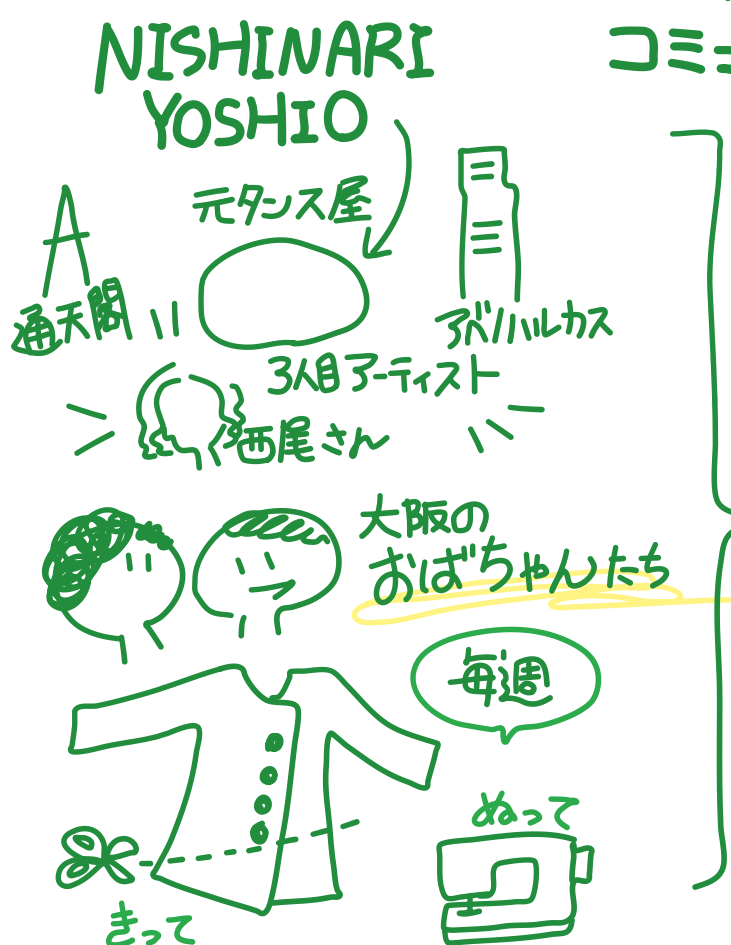 NISHINARI
YOSHIO
コミュ
元タンス屋
通天閣
アベノハルカス
3人目アーティスト
西尾さん
大阪の
おばちゃんたち
毎週
ぬって
きって